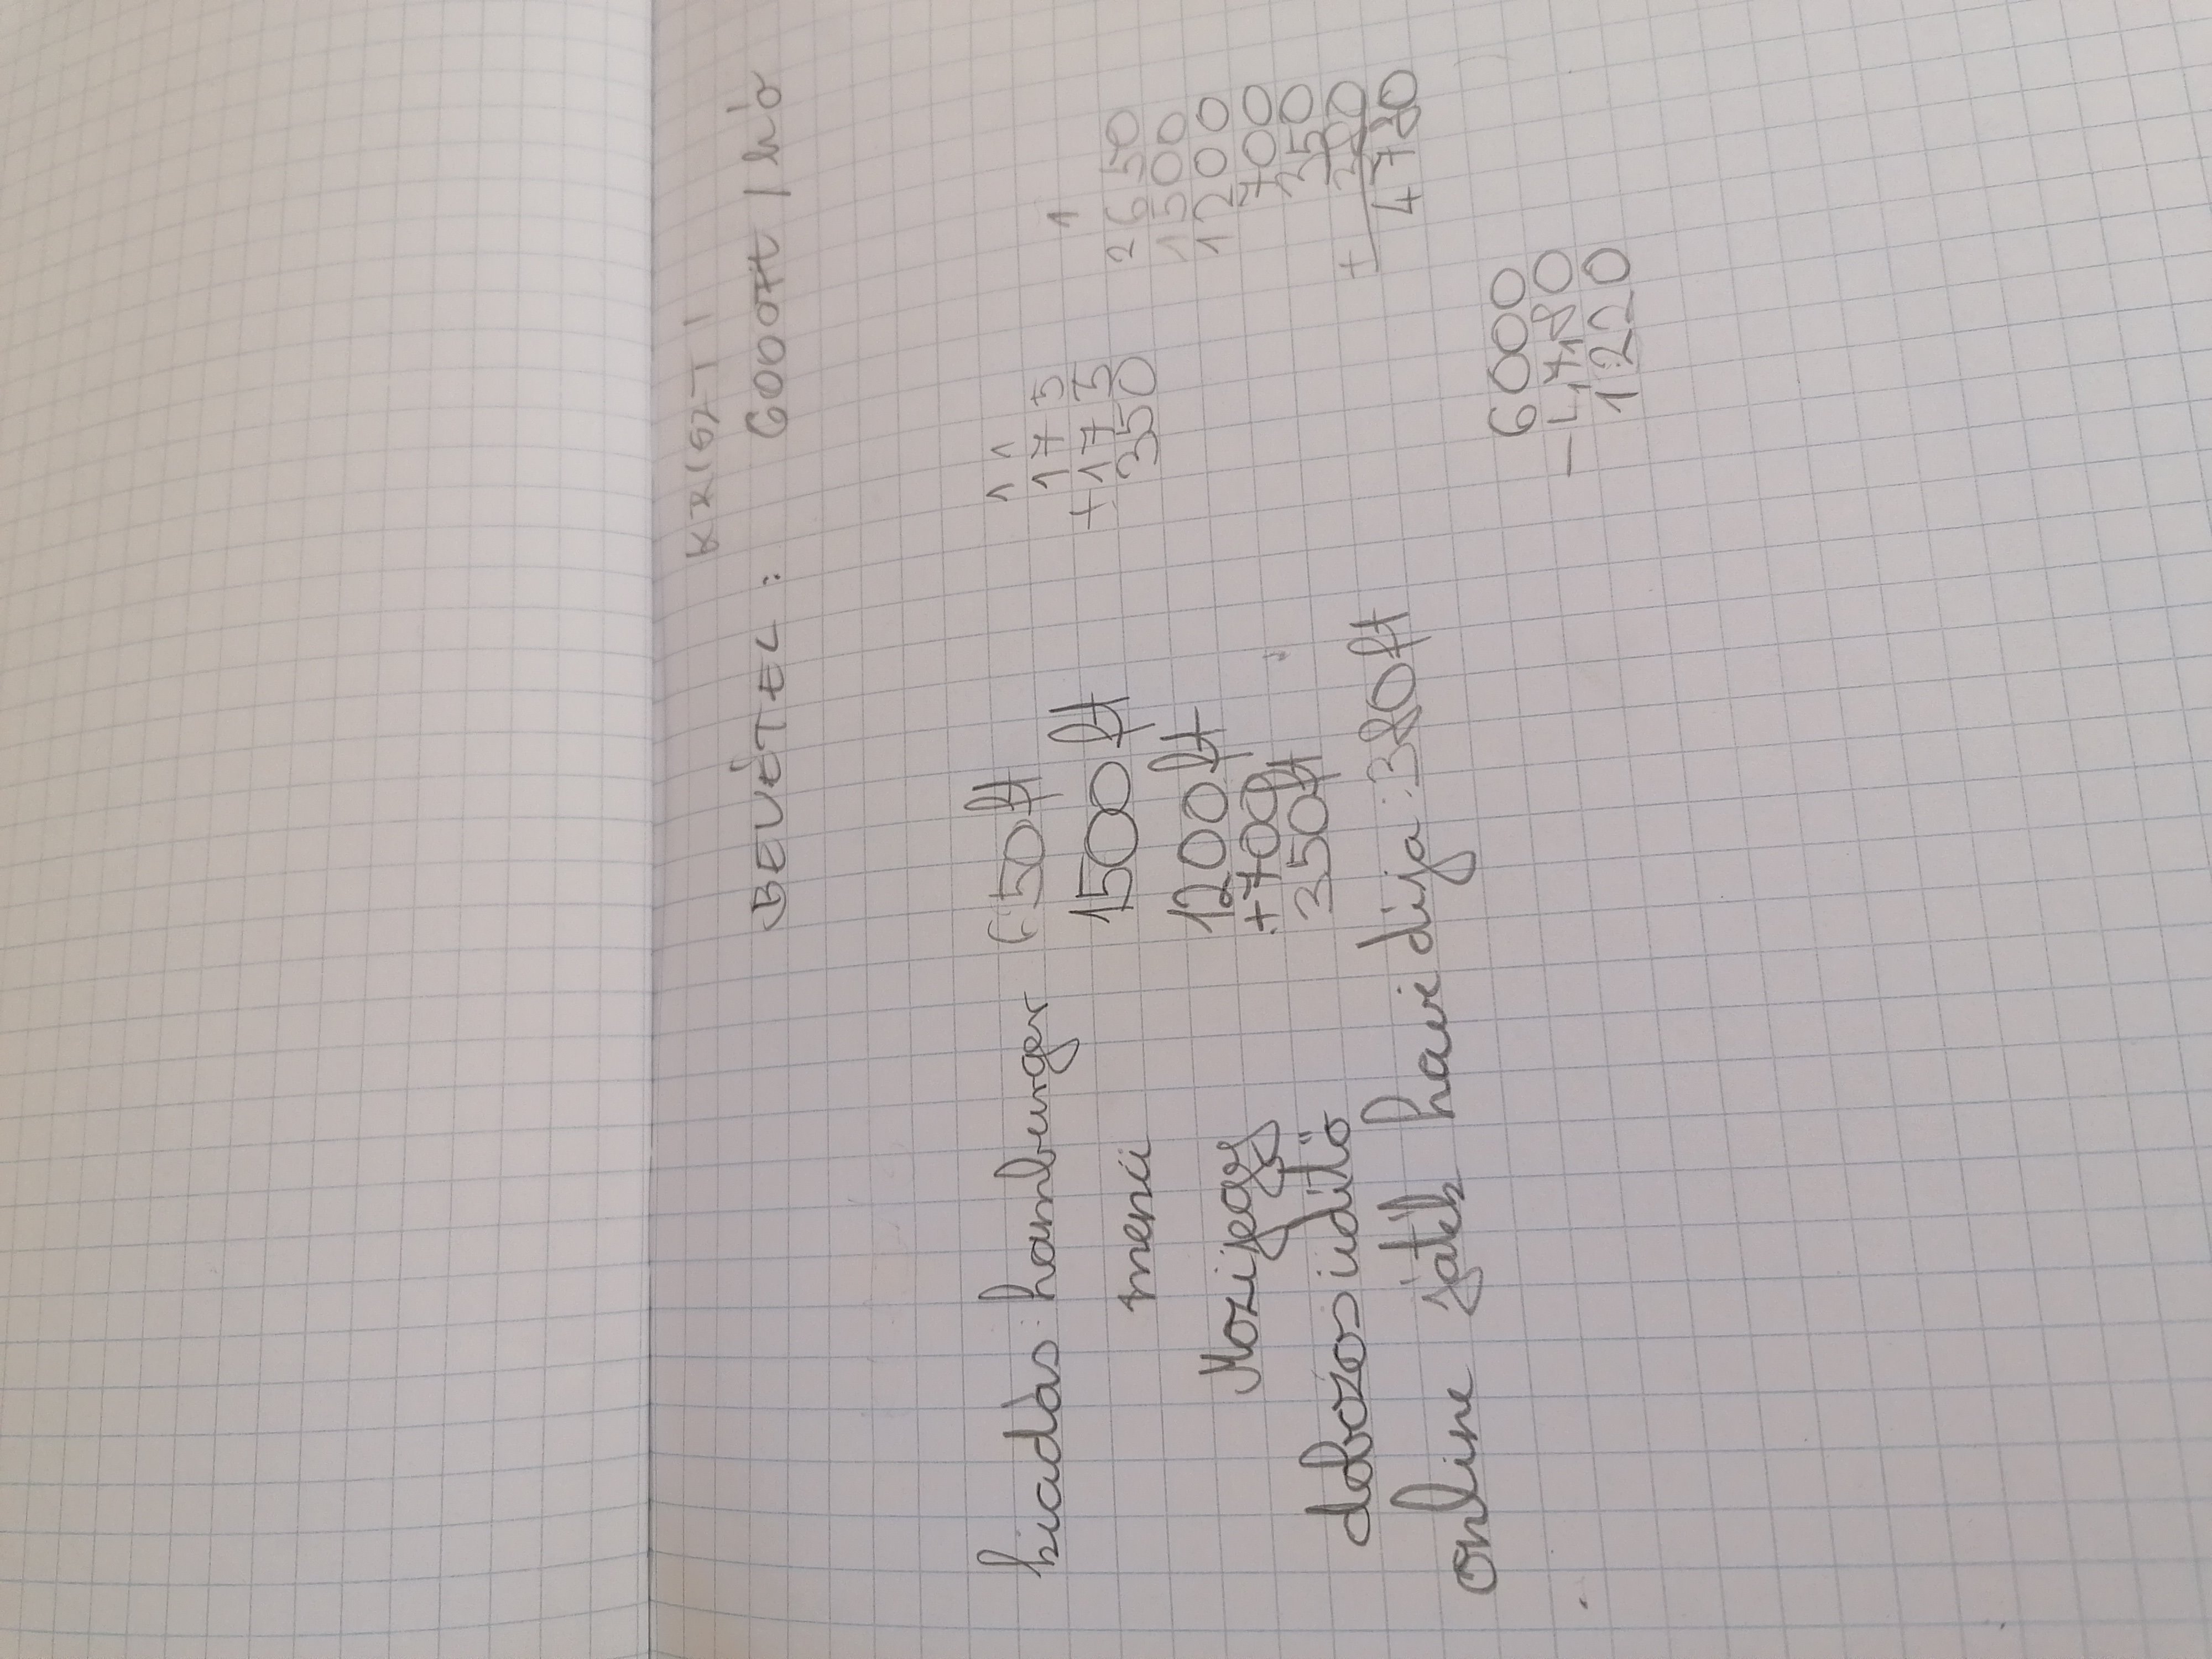 KRISZTI
BEVÉTEL: 6000Ft / hó
kiadás: hamburger 650 ft
menü 1500 ft
Mozijegy 1200 ft
+700
dobozos üdítő 350 ft
online játék havi díja: 380 ft
1 1
175
+175
350
1
2650
1500
1200
700
350
+ 380
4780
6000
-4780
1220